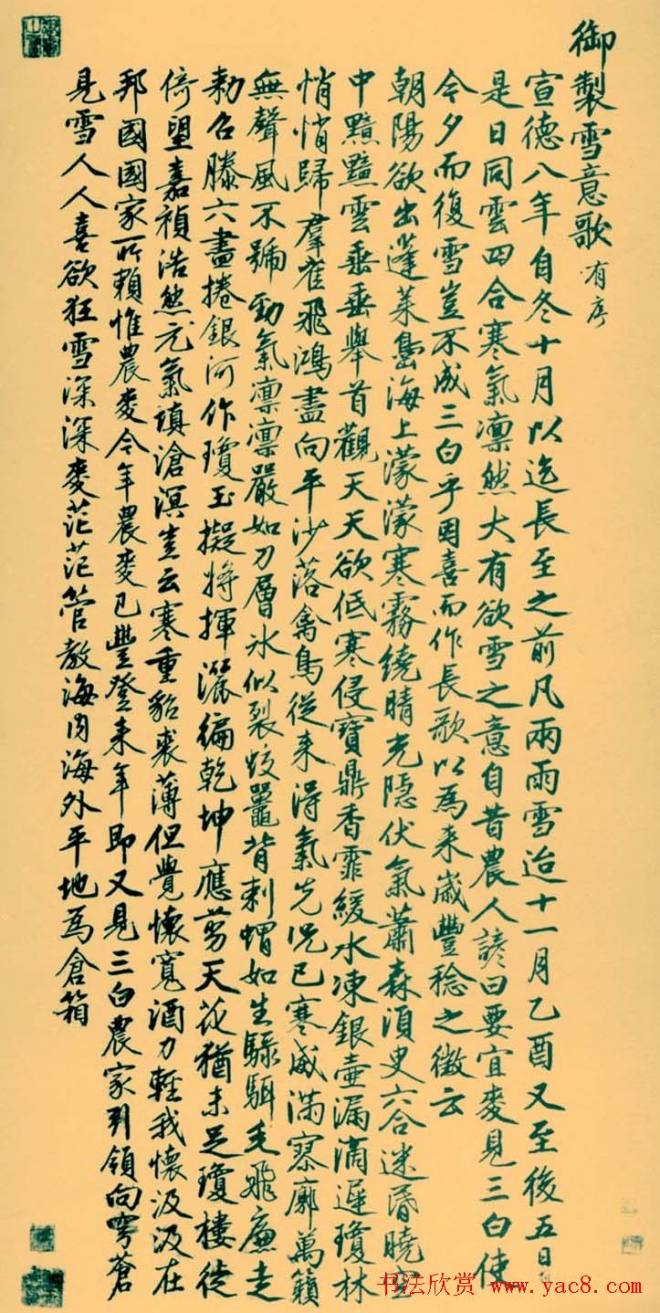 御製雪意歌 有序
宣德八年自冬十月以迄長至之前凡兩雨雪迨十一月乙酉又至後五日
是日同雲四合寒氣凛然大有欲雪之意自昔農人諺曰要宜麥見三白使
今夕而復雪豈不成三白乎因喜而作長歌以為来歲豐稔之徵云
朝陽欲出蓬莱島海上濛濛寒霧繞晴光隱伏氣蕭森湏臾六合迷昏曉空
中黯黯雲垂垂舉首觀天天欲低寒侵寶鼎香霏緩水凍銀壺漏滴遲瓊林
悄悄歸羣雀飛鴻盡向平沙落禽鳥從来得氣先況已寒威滿寥廓萬籟
無聲風不號勁氣凛凛嚴如刀層冰似裂蛟鼉背刺蝟如生騄駬毛飛廉走
勅召滕六盡捲銀河作瓊玉擬将揮灑徧乾坤應剪天花猶未足瓊樓徙
倚望嘉禎浩然元氣填滄溟豈云寒重貂裘薄但覺懷寬酒力輕我懷汲汲在
邦國國家所賴惟農麥今年農麥已豐登来年即又見三白農家引領向穹蒼
見雪人人喜欲狂雪深深麥茫茫管教海内海外平地為倉箱
书法欣赏 www.yac8.com